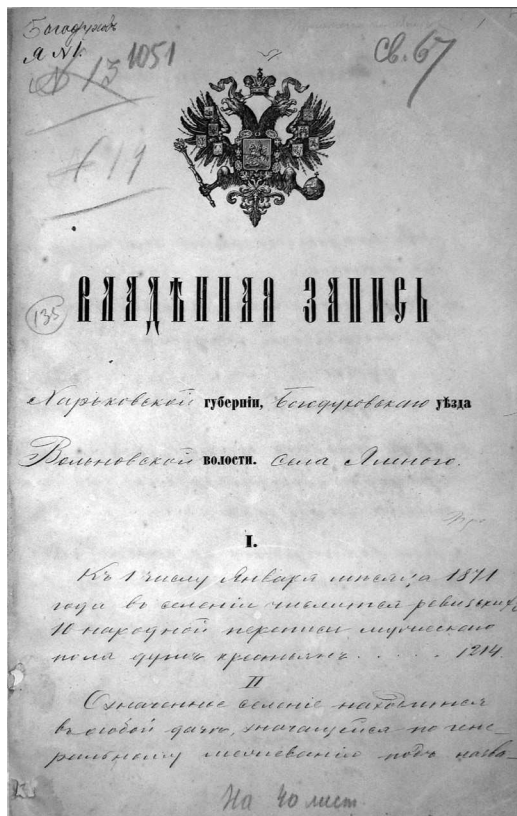 Богодухов
Я №1.
№ 13 1051
св. 67
№ 11
135
ВЛАДѢННАЯ ЗАПИСЬ
Харьковской губерніи, Богодуховскаго уѣзда
Вольновской волости. села Ямнаго.
I.
Къ 1 числу Января мѣсяца 1871
года въ селеніи числится ревизскихъ
10 народной переписи мужескаго
пола душъ крестьянъ . . . . . 1214.
II
Означенное селеніе находится
въ особой дачѣ, значущейся по гене-
ральному межеванію подъ назва-
На 40 лист.